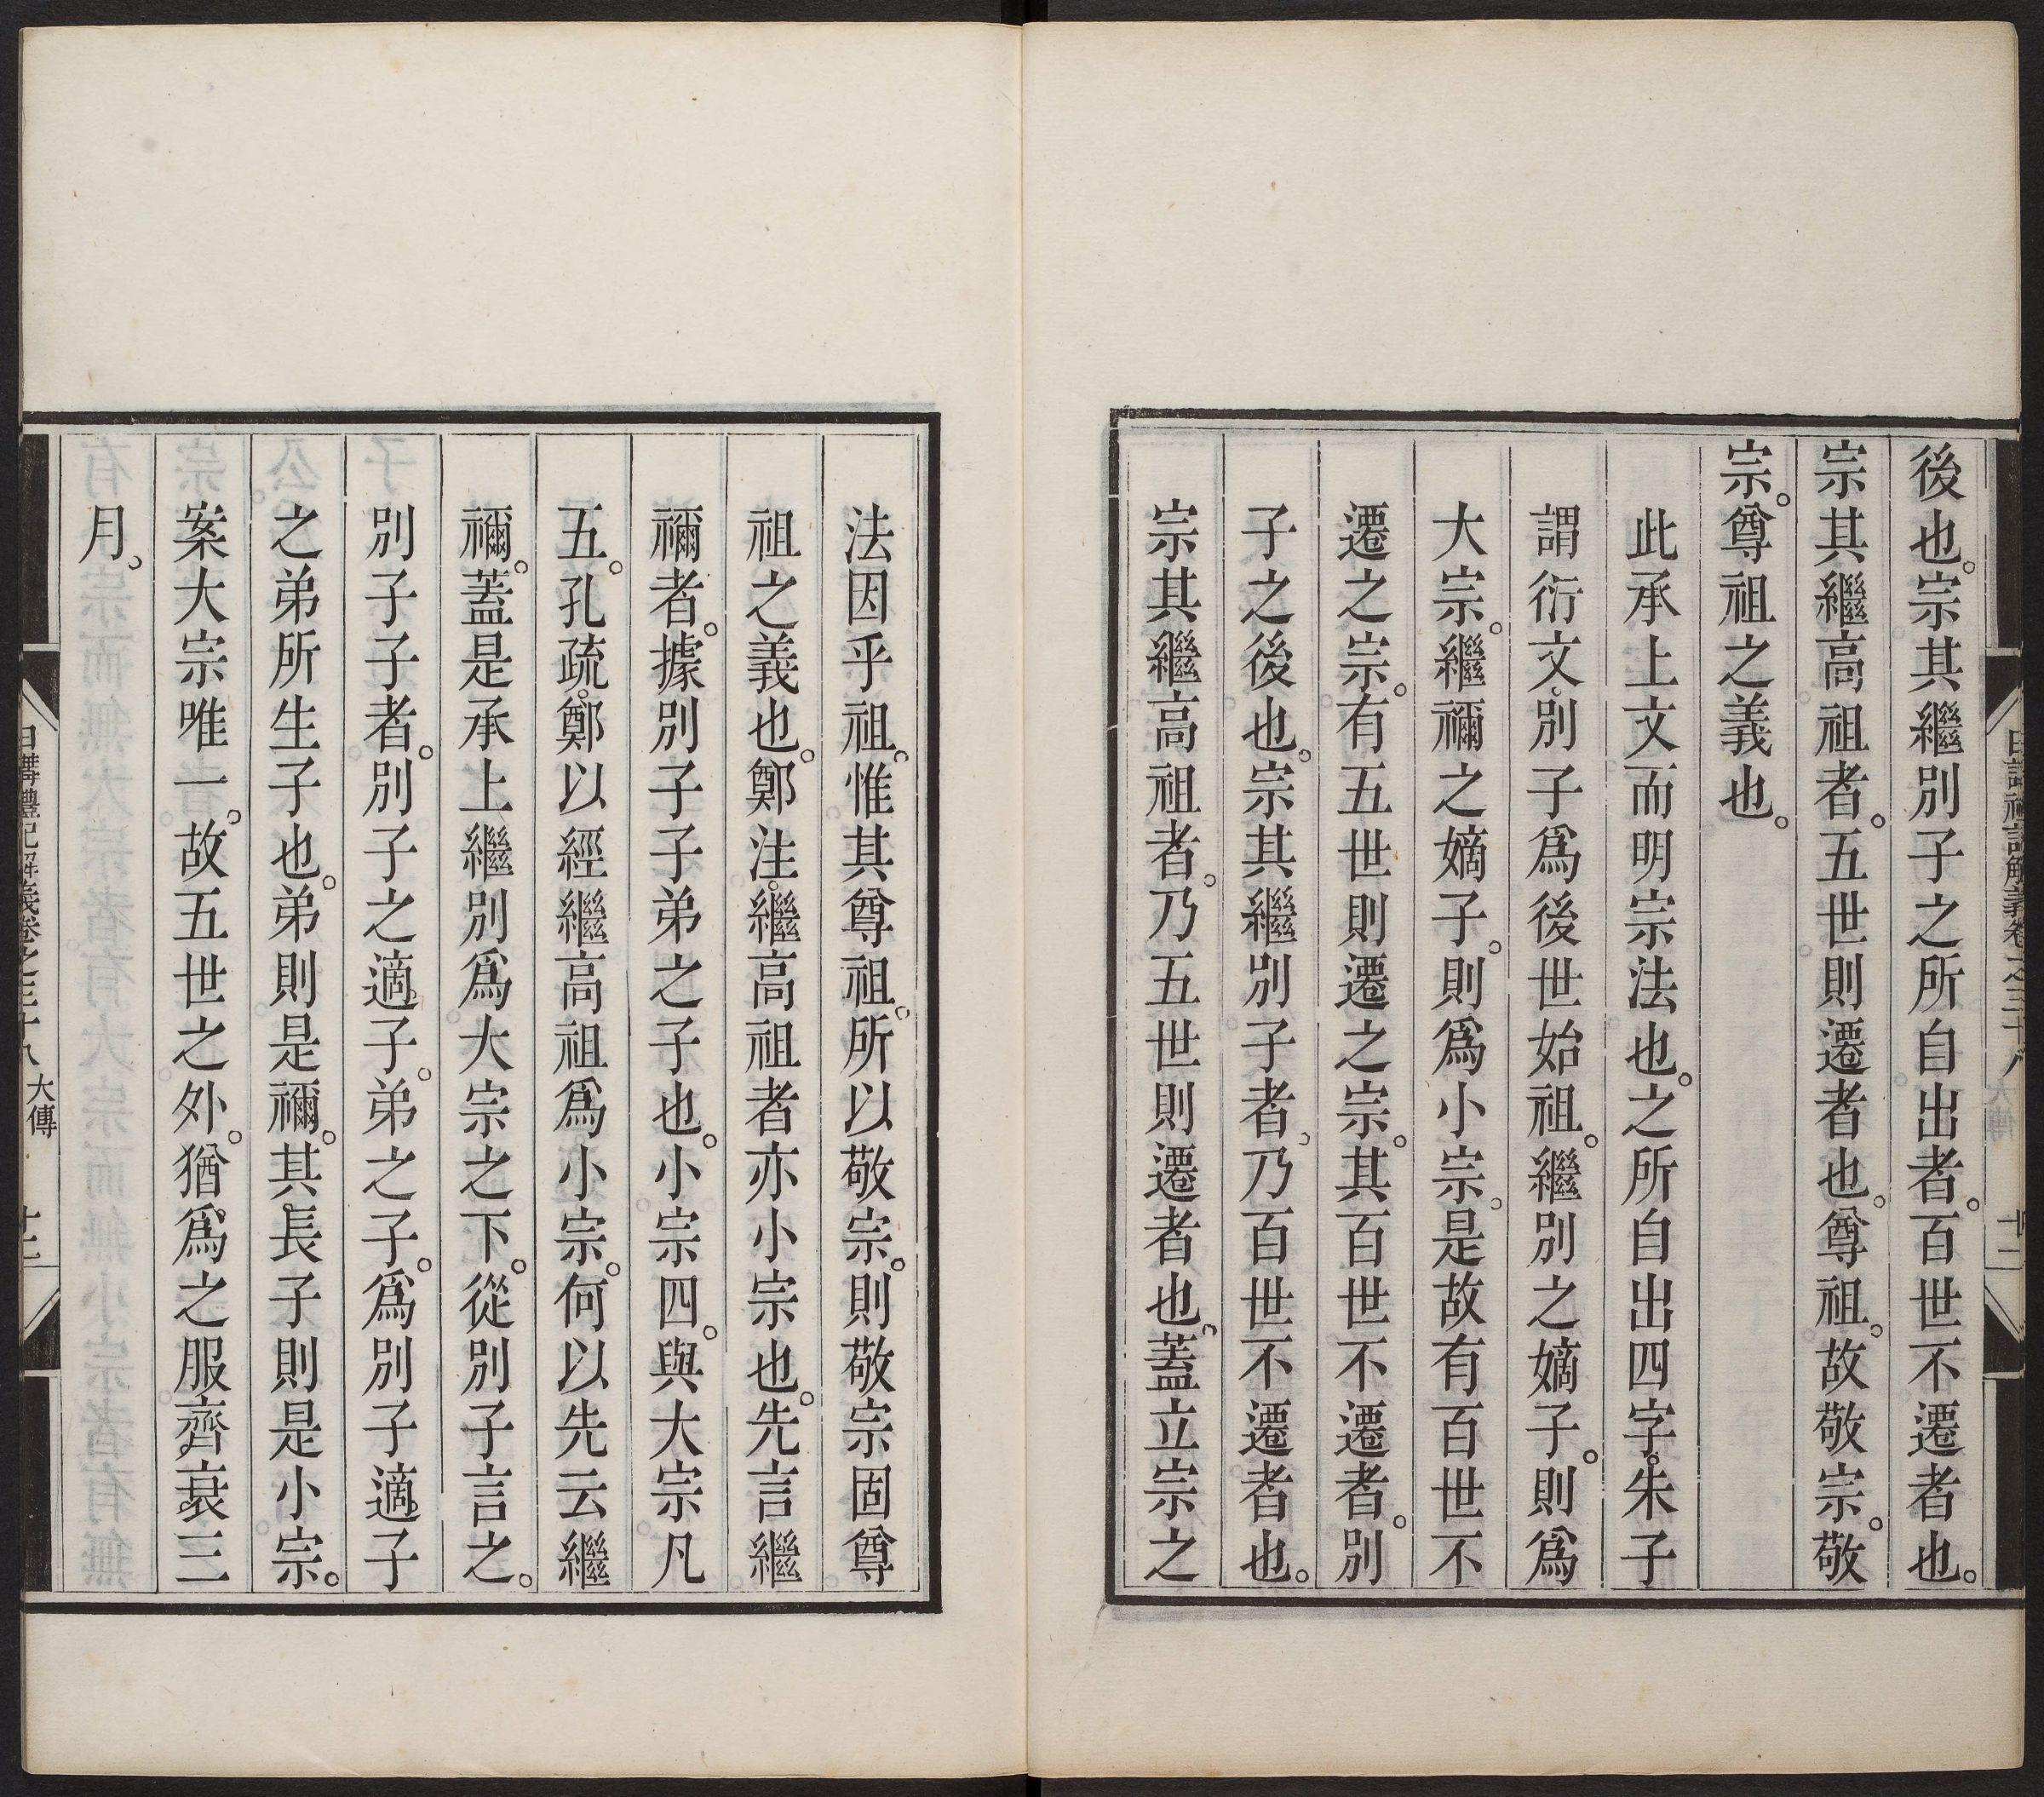 後也。宗其繼別子之所自出者。百世不遷者也。
宗其繼高祖者。五世則遷者也。尊祖。故敬宗。敬
宗。尊祖之義也。
此承上文而明宗法也。之所自出四字。朱子
謂衍文。別子爲後世始祖。繼別之嫡子。則爲
大宗。繼禰之嫡子。則爲小宗。是故有百世不
遷之宗。有五世則遷之宗。其百世不遷者。別
子之後也。宗其繼別子者。乃百世不遷者也。
宗其繼高祖者。乃五世則遷者也。蓋立宗之
法因乎祖。惟其尊祖。所以敬宗。則敬宗固尊
祖之義也。鄭注。繼高祖者亦小宗也。先言繼
禰者。據別子子弟之子也。小宗四。與大宗凡
五。孔疏。鄭以經繼高祖爲小宗。何以先云繼
禰。蓋是承上繼別爲大宗之下。從別子言之。
別子子者。別子之適子。弟之子。爲別子適子
之弟所生子也。弟則是禰。其長子則是小宗。
案大宗唯一。故五世之外。猶爲之服齊衰三
月。
日講禮記解義卷之三十八 大傳 十二